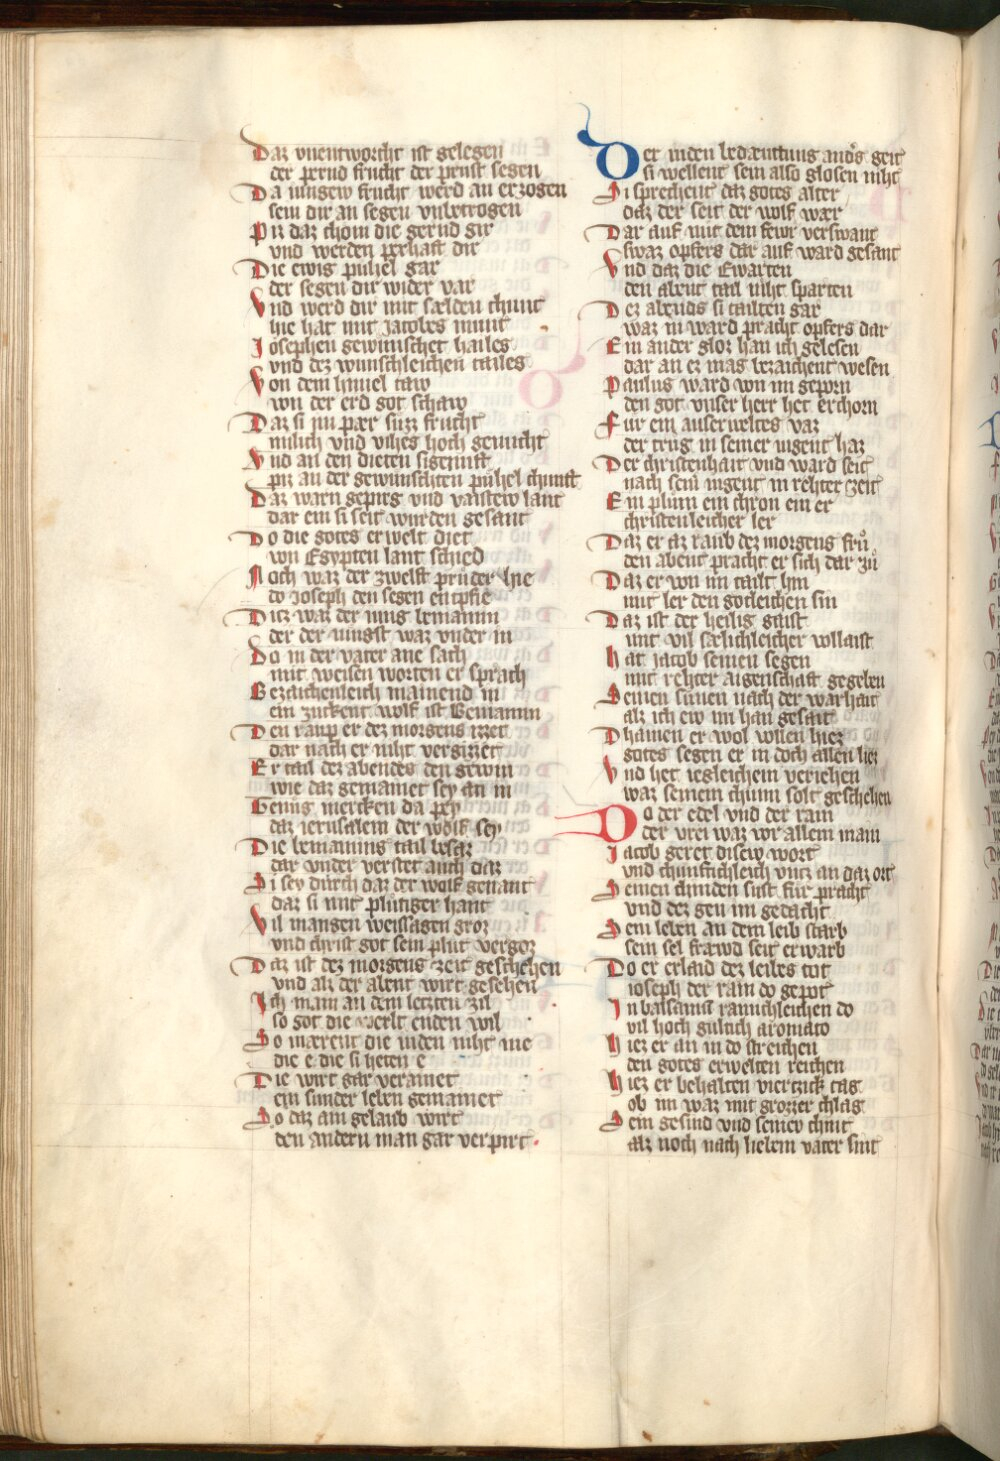 Daz vnentworcht ist gelegen
der pernd frucht der prust segen
Da iungew frucht werd an erzogen
sein dir an segen vnbetrogen
Piz daz chom die gernd gir
vnd werden perhaft dir
Die ewig puhel gar
der segen dir wider var
Vnd werd dir mit sælden chunt
hie hat mit Jacobes munt
Josephen gewunschet hailes
vnd dez wunschleichen tailes
Von dem himel taw
von der erd got schaw
Daz si im pær suzz frucht
milich vnd vihes hoch genucht
Vnd an den dieten signust
piz an der gewunschten puhel chunft
Daz warn gepirg vnd vaistew lant
dar ein si seit wurden gesant
Do die gotes erwelt diet
von Egypten lant schied
Noch waz der zwelft pruder hie
do Joseph den segen enpfie
Ditz waz der iung beniamin
der der iungst waz vnder in
Do in der vater ane sach
mit weisen worten er sprach
Bezaichenleich mainend in
ein zuckent wolf ist Beniamin
Den raup er dez morgens izzet
dar nach er niht vergizzet
Er tail dez abendes den gewin
wie daz gemainet sey an in
Genug mercken da pey
daz ierusalem der wolf sey
Die beniamins tail besaz
dar vnder verstet auch daz
Si sey durch daz der wolf genant
daz si mit plutiger hant
Vil mangen weissagen groz
vnd christ got sein plut vergoz
Daz ist dez morgens zeit geschehen
vnd alz der abent wirt gesehen
Ich main an dem letzten zil
so got die werlt enden wil
So mærent die iuden niht me
die e die si heten e
Die wirt gar verainet
ein sunder leben gemainet
So daz am gelaub wirt
den andern man gar verpirt
Der iuden bedæuttung anders geit
si wellent sein also glosen niht
Si sprechent daz gotes alter
daz der seit der wolf wær
Dar auf mit dem fewr verswant
swaz opfers dar auf ward gesant
Vnd daz die Ewarten
den abent tail niht sparten
Dez abends si tailten gar
waz in ward pracht opfers dar
Ein ander gloz han ich gelesen
dar an ez mag bezaichent wesen
Paulus ward von im geporn
den got vnser herr het erchorn
Fur ein auserweltes vaz
der trug in seiner iugent haz
Der christenhait vnd ward seit
nach seiner iugent in rehter zeit
Ein plum ein chron ein er
christenleicher ler
Daz er az raub dez morgens fru
den abent pracht er sich dar zu
Daz er von im tailt hin
mit ler den gotleichen sin
Daz ist der heilig gaist
mit vil sælichleicher vollaist
hat Jacob seinen segen
mit rehter aigenschaft gegeben
Seinen sunen nach der warhait
alz ich ew im han gesait
Dhainen er wol wllen hiez
gotes segen er in doch allen liez
Vnd het iegleichem veriehen
waz seinem chunn solt geschehen
Do der edel vnd der rain
der vrei waz vor allem main
Jacob geret disew wort
vnd chunftichleich vntz an daz ort
Seinen chinden sust fur pracht
vnd dez gen im gedacht
Sein leben an dem leib starb
sein sel fræwd seit erwarb
Do er erlaid dez leibes tot
ioseph der rain do gepot
In balsamus rauuchleichen do
vil hoch gultich aromato
hiez er an in do streichen
den gotes erwelten reichen
hiez er behalten viertzick tag
ob im waz mit grozzer chlag
Sein gesind vnd seinev chint
alz noch nach liebem vater sint